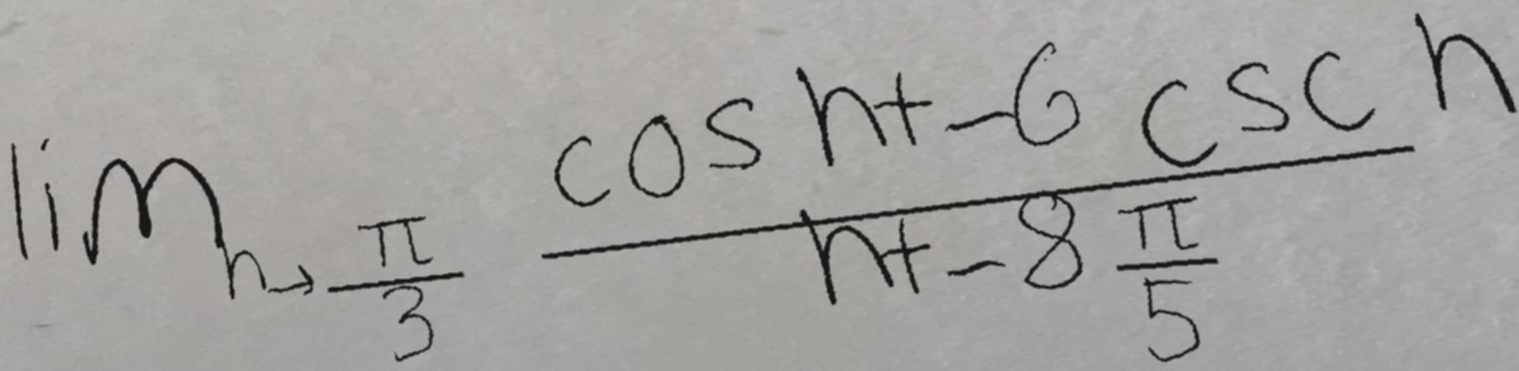 \lim_{h \to \frac{\pi}{3}} \frac{\cos h + -6 \csc h}{h + -8 \frac{\pi}{5}}